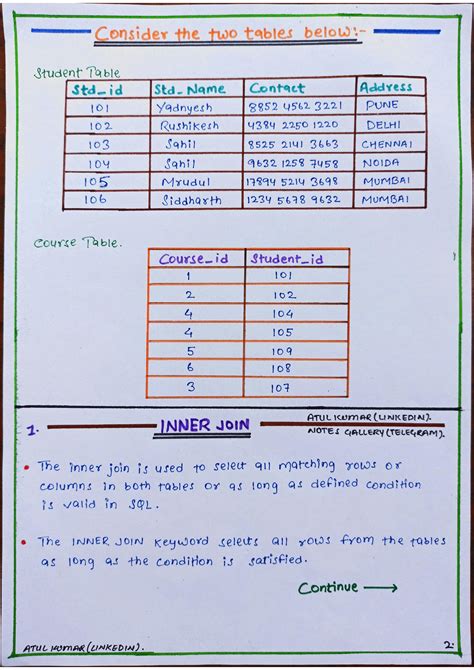 Consider the two tables below:-
Student Table
Std_id Std_Name Contact Address
101 Yadnyesh 8852 4562 3221 PUNE
102 Rushikesh 4384 2250 1220 DELHI
103 Sahil 8525 2141 3663 CHENNAI
104 Sahil 9632 1258 7458 NOIDA
105 Mrudul 17894 5214 3698 MUMBAI
106 Siddharth 1234 5678 9632 MUMBAI
Course Table.
Course_id Student_id
1 101
2 102
4 104
4 105
5 109
6 108
3 107
1. INNER JOIN
ATUL KUMAR (LINKEDIN).
NOTES GALLERY (TELEGRAM).
• The inner join is used to select all matching rows or
columns in both tables or as long as defined condition
is valid in SQL.
• The INNER JOIN keyword selects all rows from the tables
as long as the condition is satisfied.
Continue →
ATUL KUMAR (LINKEDIN).
2.